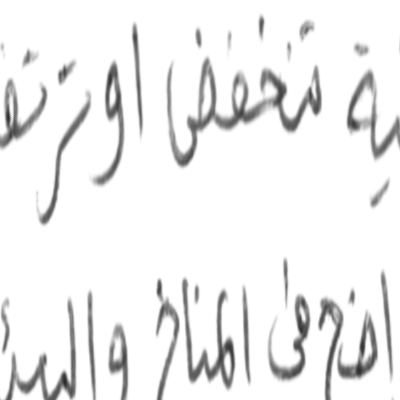 ية تنخفض او ترتفـ
اضح فى المناخ والبيئـ